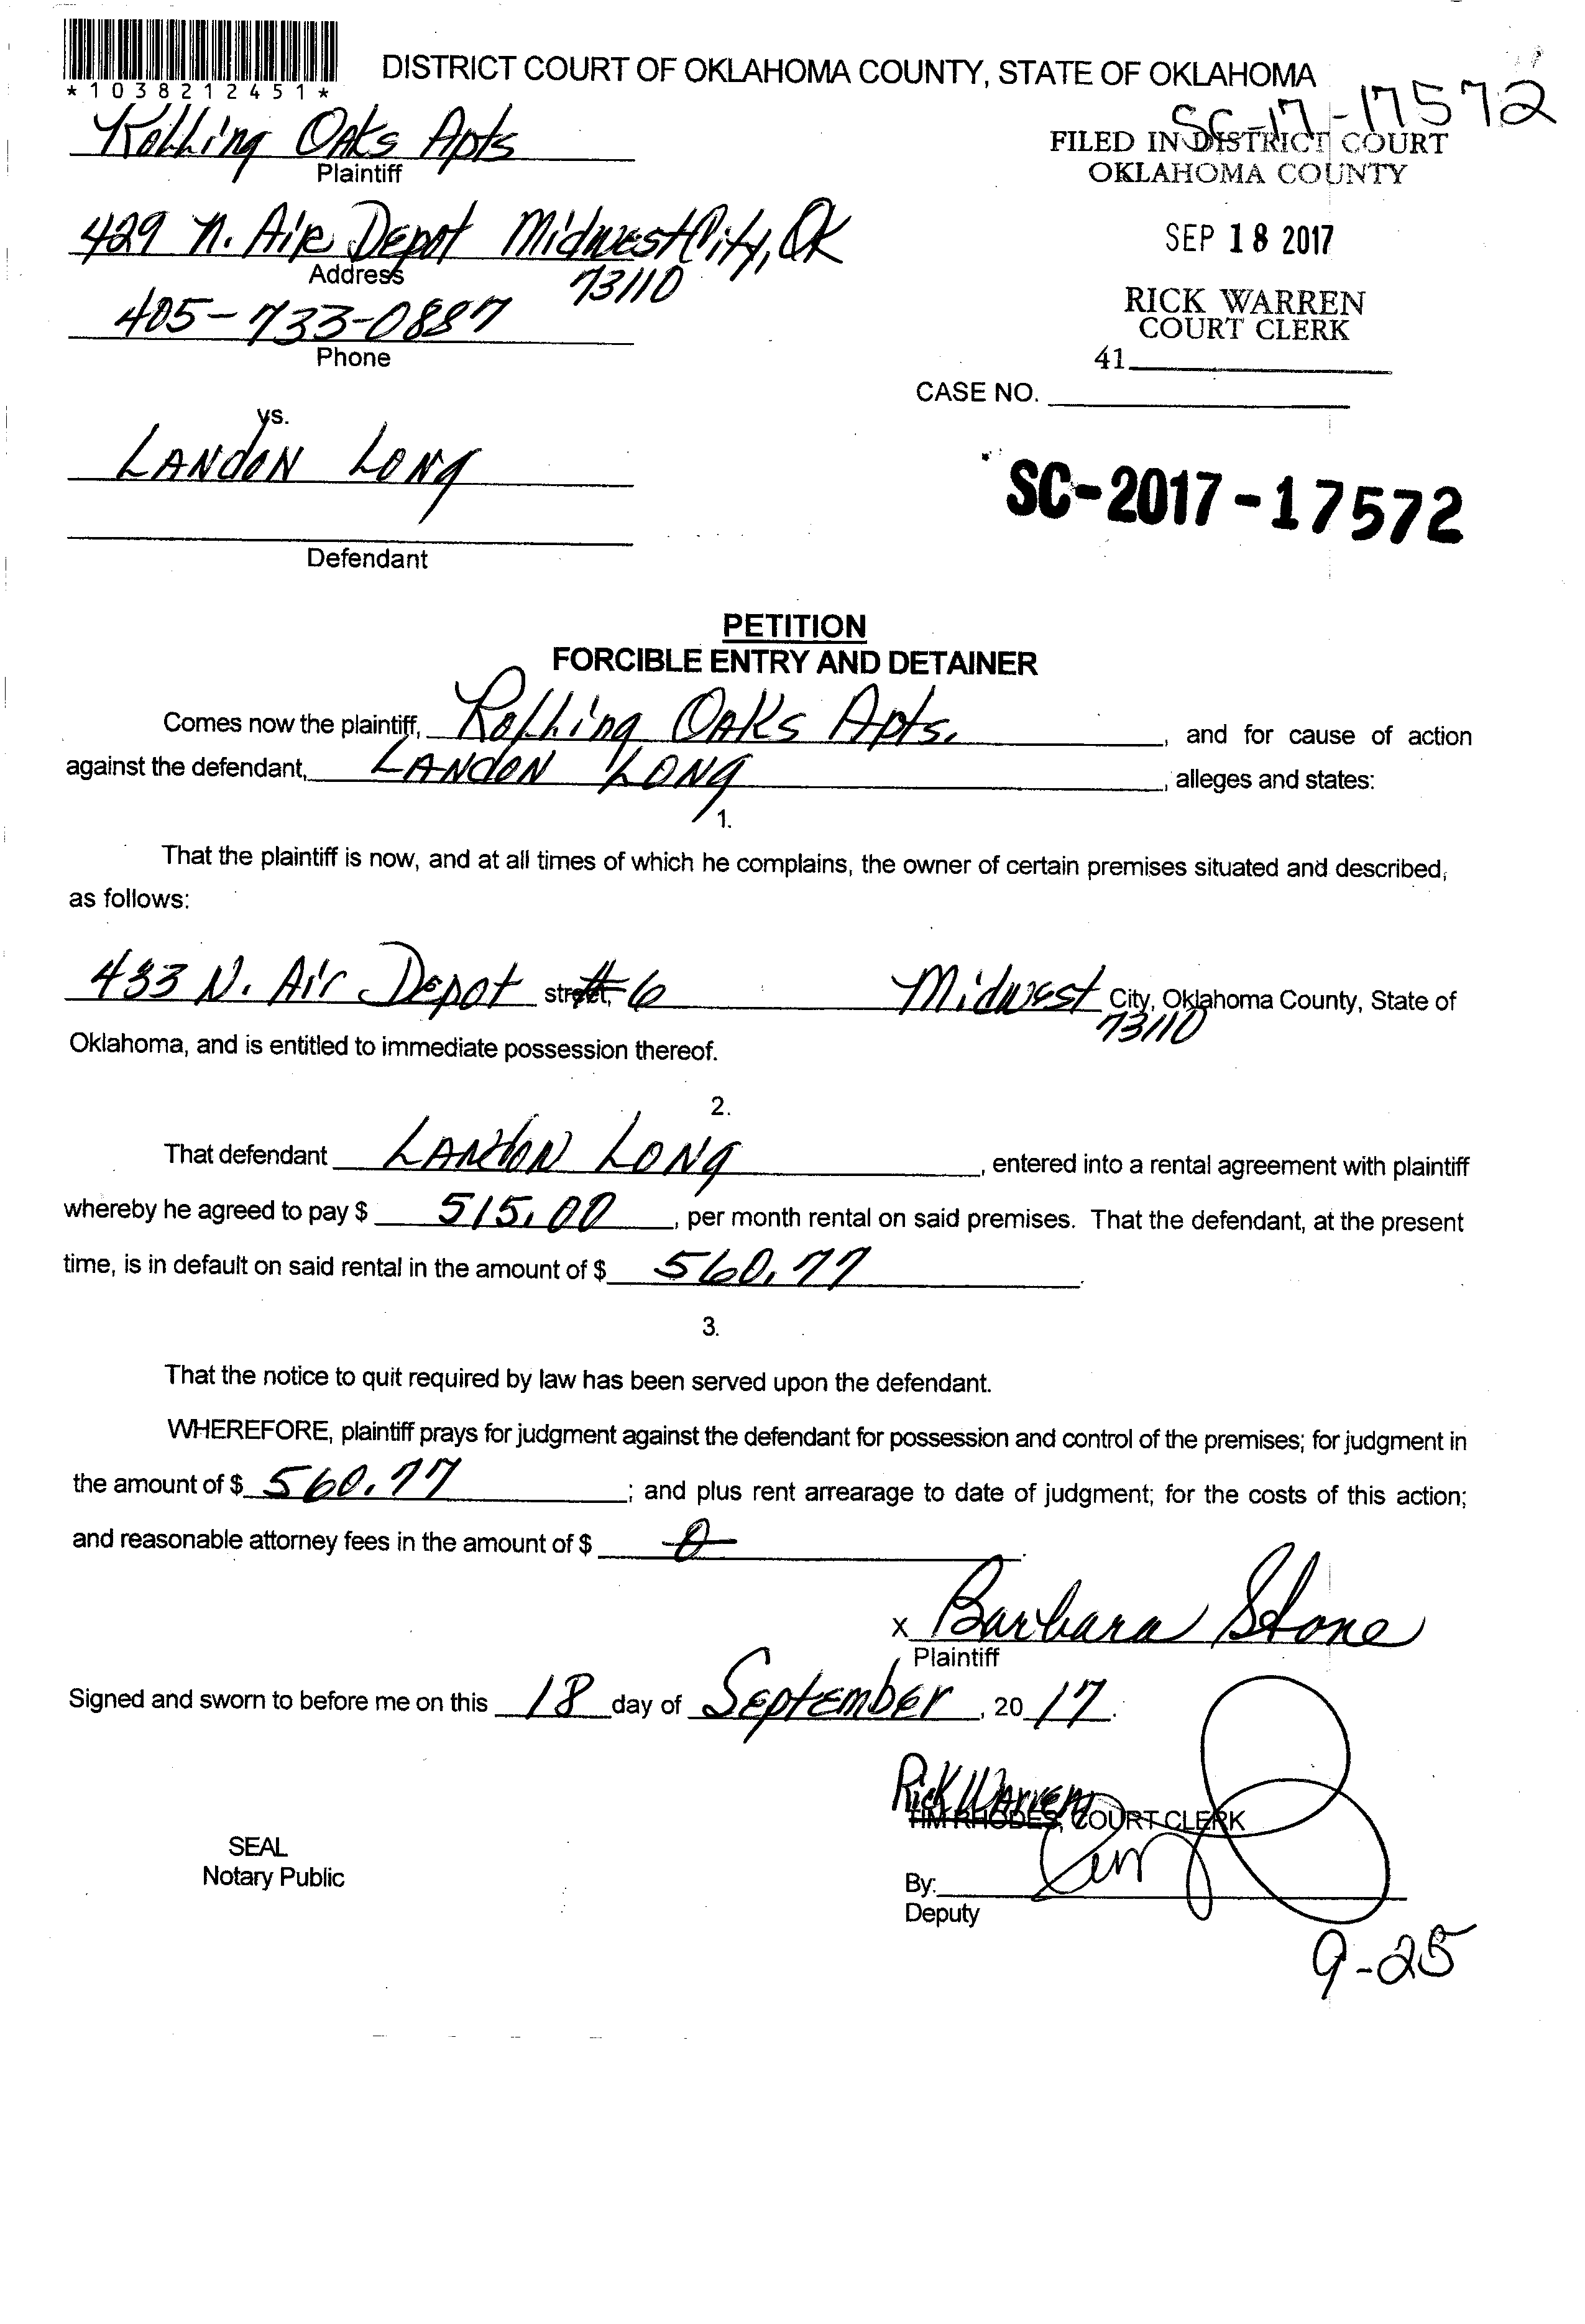 *1038212451*
DISTRICT COURT OF OKLAHOMA COUNTY, STATE OF OKLAHOMA
SC-17-17572
Rolling Oaks Apts
Plaintiff
FILED IN DISTRICT COURT
OKLAHOMA COUNTY
429 N. Air Depot Midwest City, OK
Address
73110
SEP 18 2017
405-733-0887
Phone
RICK WARREN
COURT CLERK
41
CASE NO.
vs.
Landon Long
SC-2017-17572
Defendant
PETITION
FORCIBLE ENTRY AND DETAINER
Comes now the plaintiff, Rolling Oaks Apts. , and for cause of action
against the defendant, Landon Long , alleges and states:
1.
That the plaintiff is now, and at all times of which he complains, the owner of certain premises situated and described,
as follows:
433 N. Air Depot street, #6 Midwest City, Oklahoma County, State of
73110
Oklahoma, and is entitled to immediate possession thereof.
2.
That defendant Landon Long , entered into a rental agreement with plaintiff
whereby he agreed to pay $ 515.00 , per month rental on said premises. That the defendant, at the present
time, is in default on said rental in the amount of $ 560.77 .
3.
That the notice to quit required by law has been served upon the defendant.
WHEREFORE, plaintiff prays for judgment against the defendant for possession and control of the premises; for judgment in
the amount of $ 560.77 ; and plus rent arrearage to date of judgment; for the costs of this action;
and reasonable attorney fees in the amount of $ 0 .
x Barbara Stone
Plaintiff
Signed and sworn to before me on this 18 day of September , 20 17 .
Rick Warren
TIM RHODES, COURT CLERK
SEAL
Notary Public
By:
Deputy
9-25